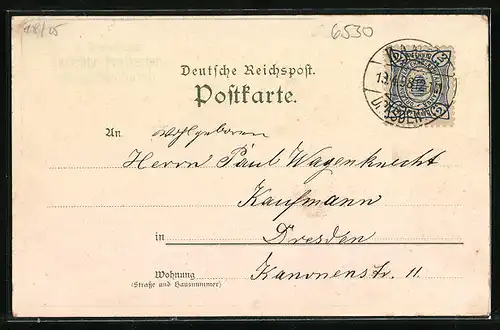 18/25
6530
Deutsche Reichspost.
Postkarte.
DRESDEN
An wohlgeboren
Herrn Paul Wagenknecht
Kaufmann
in Dresden
Wohnung Kanonenstr. 11
(Straße und Hausnummer)